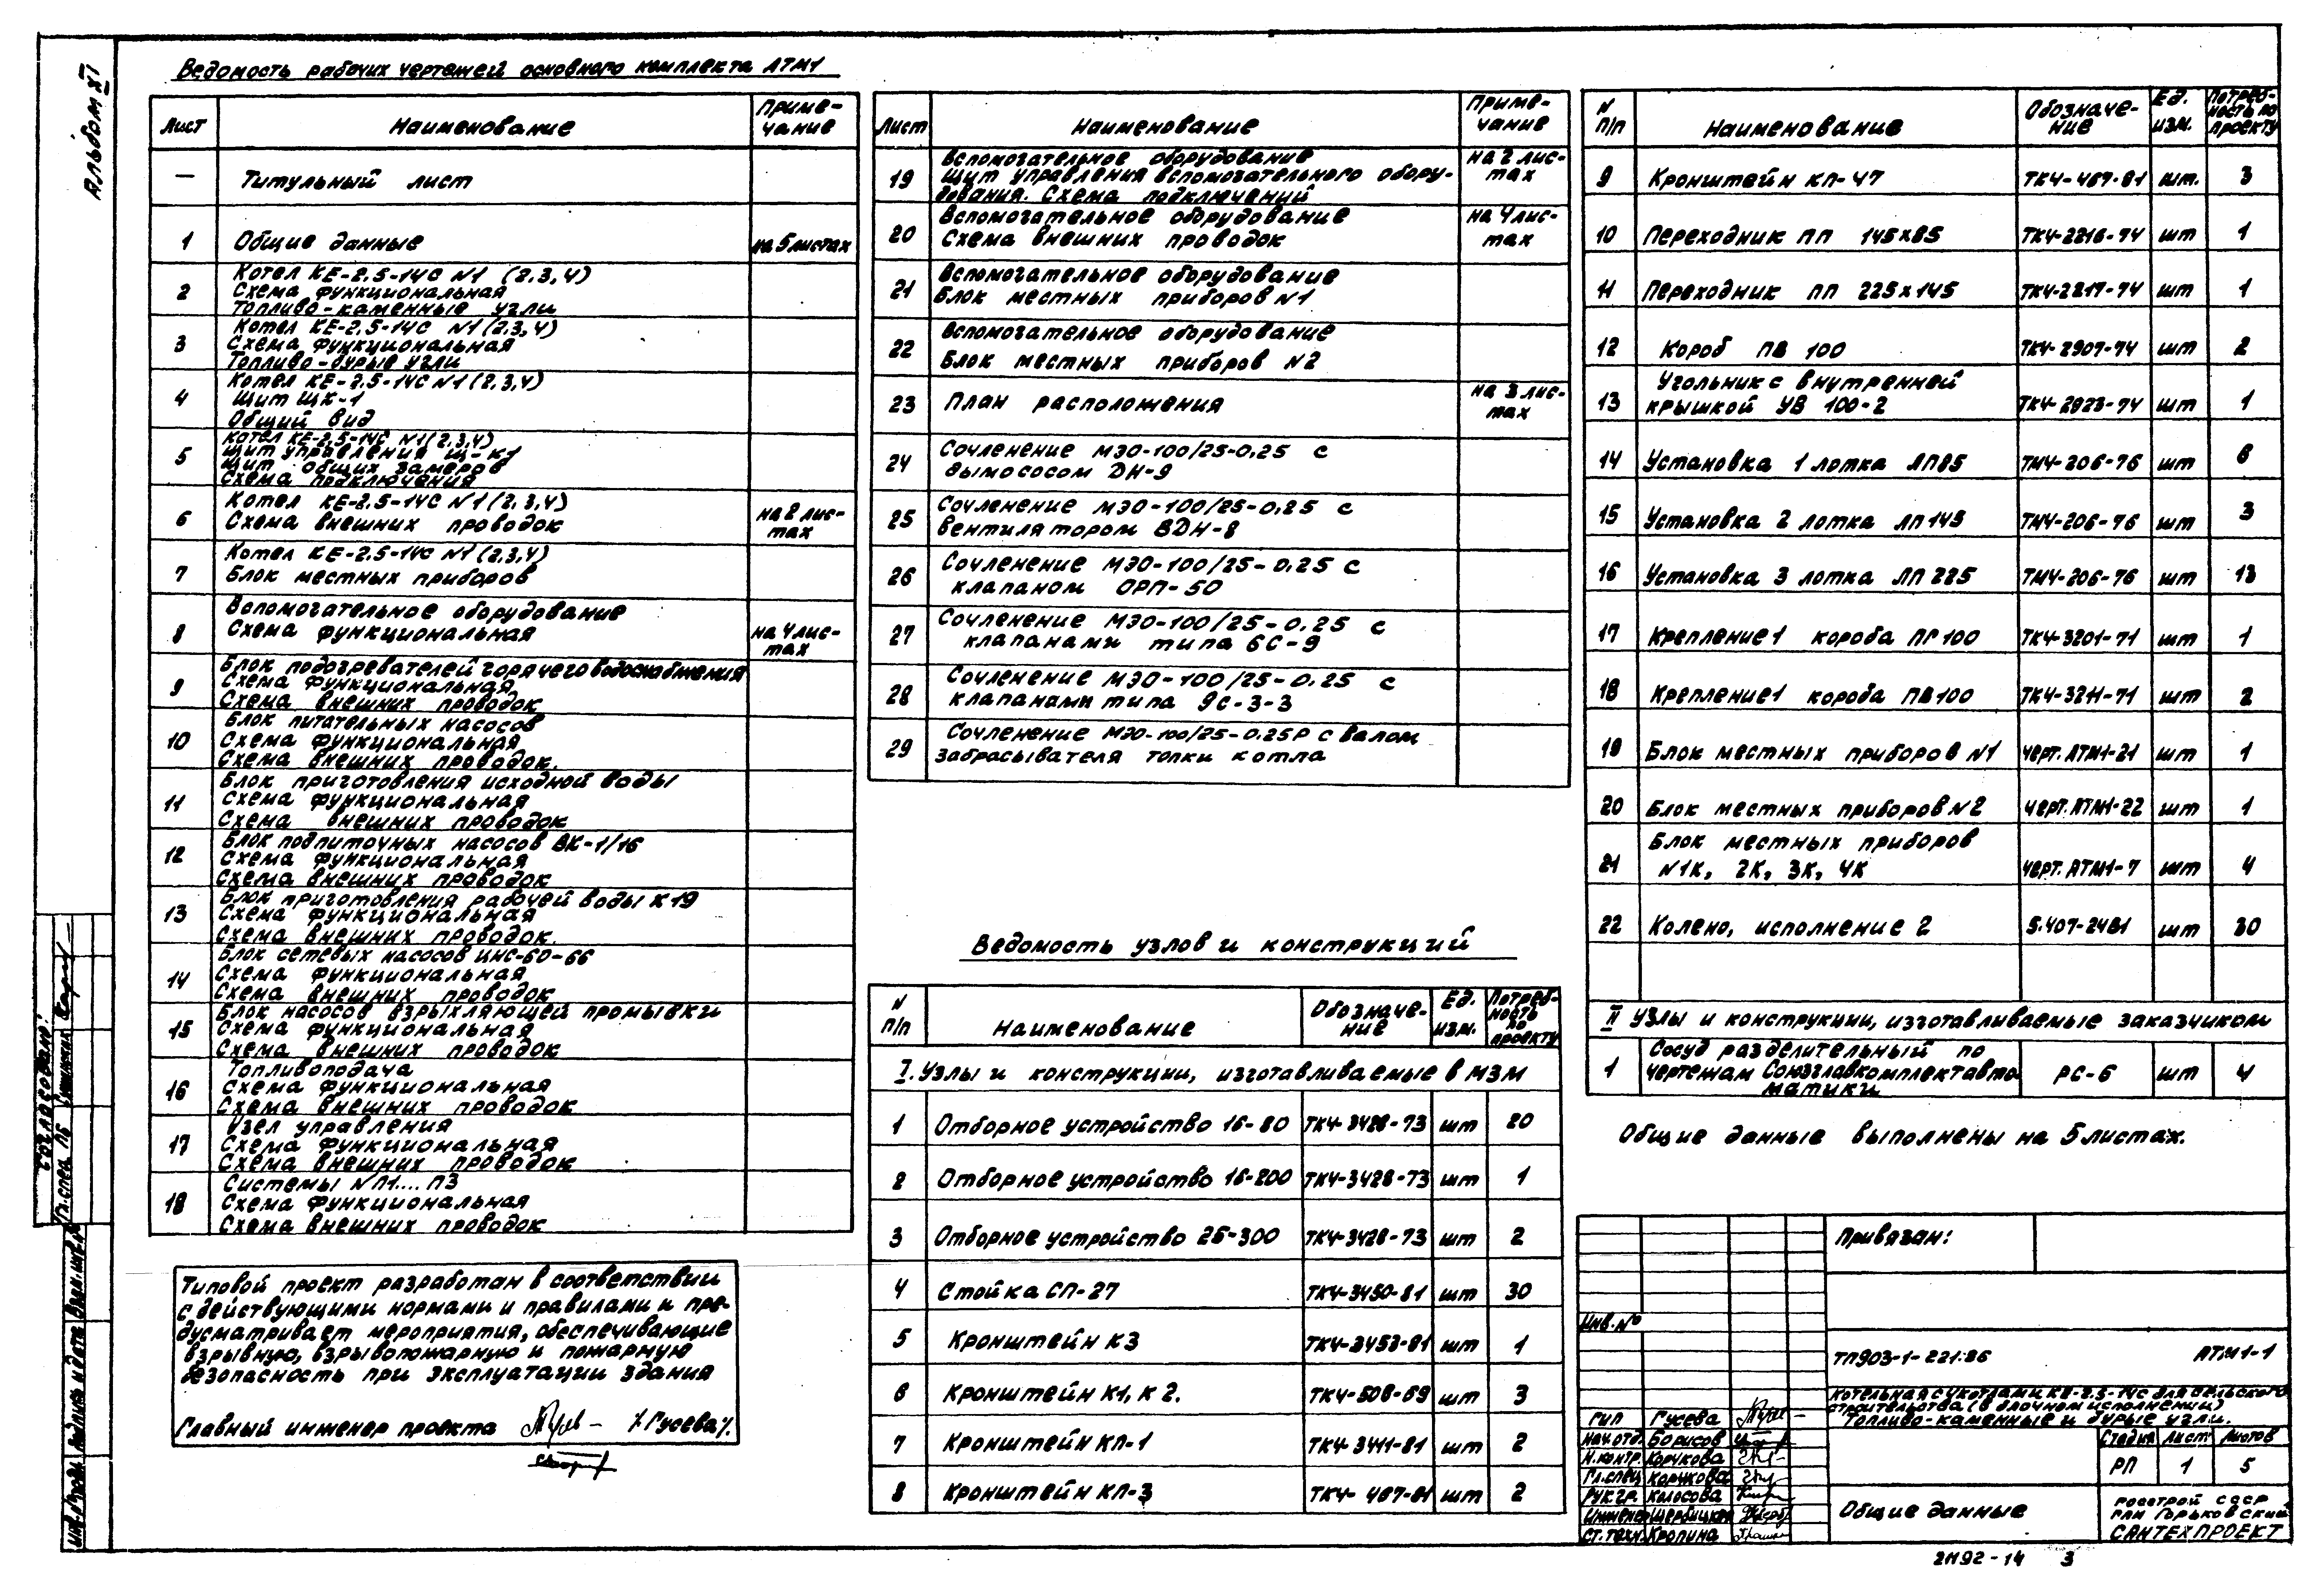 Альбом XI
Ведомость рабочих чертежей основного комплекта АТМ1
Лист Наименование Приме-
чание
— Титульный лист
1 Общие данные на 5 листах
Котел КЕ-2.5-14С N1 (2,3,4)
2 Схема функциональная
Топливо-каменные угли
Котел КЕ-2.5-14С N1 (2,3,4)
3 Схема функциональная
Топливо-бурые угли
Котел КЕ-2.5-14С N1 (2,3,4)
4 Щит ЩК-1
Общий вид
Котел КЕ-2.5-14С N1 (2,3,4)
5 Щит управления Щ-К1
Щит общих замеров
Схема подключения
Котел КЕ-2.5-14С N1 (2,3,4)
6 Схема внешних проводок на 2 лис-
тах
Котел КЕ-2.5-14С N1 (2,3,4)
7 Блок местных приборов
Вспомогательное оборудование
8 Схема функциональная на 4 лис-
тах
Блок подогревателей горячего водоснабжения
9 Схема функциональная
Схема внешних проводок
Блок питательных насосов
10 Схема функциональная
Схема внешних проводок.
Блок приготовления исходной воды
11 Схема функциональная
Схема внешних проводок
Блок подпиточных насосов ВК-1/16
12 Схема функциональная
Схема внешних проводок
Блок приготовления рабочей воды К19
13 Схема функциональная
Схема внешних проводок.
Блок сетевых насосов ЦНС-60-66
14 Схема функциональная
Схема внешних проводок
Блок насосов взрыхляющей промывки
15 Схема функциональная
Схема внешних проводок
Топливоподача
16 Схема функциональная
Схема внешних проводок
Узел управления
17 Схема функциональная
Схема внешних проводок
Системы NП1....П3
18 Схема функциональная
Схема внешних проводок
Типовой проект разработан в соответствии
с действующими нормами и правилами и пре-
дусматривает мероприятия, обеспечивающие
взрывную, взрывопожарную и пожарную
безопасность при эксплуатации здания
Главный инженер проекта /Гусева/.
Лист Наименование Приме-
чание
Вспомогательное оборудование на 2 лис-
19 Щит управления вспомогательного обору- тах
дования. Схема подключений
Вспомогательное оборудование на 4 лис-
20 Схема внешних проводок тах
Вспомогательное оборудование
21 Блок местных приборов N1
Вспомогательное оборудование
22 Блок местных приборов N2
23 План расположения на 3 лис-
тах
Сочленение МЭО-100/25-0,25 с
24 дымососом ДН-9
Сочленение МЭО-100/25-0,25 с
25 вентилятором ВДН-8
Сочленение МЭО-100/25-0.25 с
26 клапаном ОРП-50
Сочленение МЭО-100/25-0.25 с
27 клапанами типа 6С-9
Сочленение МЭО-100/25-0.25 с
28 клапанами типа 9с-3-3
Сочленение МЭО-100/25-0.25Р с валом
29 забрасывателя топки котла
Ведомость узлов и конструкций
N
п/п Наименование Обозначе-
ние Ед.
изм. Потреб-
ность
по
проекту
I. Узлы и конструкции, изготавливаемые в МЗМ
1 Отборное устройство 16-80 ТК4-3428-73 шт 20
2 Отборное устройство 16-200 ТК4-3428-73 шт 1
3 Отборное устройство 25-300 ТК4-3428-73 шт 2
4 Стойка СП-27 ТК4-3450-81 шт 30
5 Кронштейн К3 ТК4-3453-81 шт 1
6 Кронштейн К1, К2. ТК4-506-69 шт 3
7 Кронштейн КП-1 ТК4-3411-81 шт 2
8 Кронштейн КП-3 ТК4-467-81 шт 2
N
п/п Наименование Обозначе-
ние Ед.
изм. Потреб-
ность по
проекту
9 Кронштейн КП-47 ТК4-467-81 шт. 3
10 Переходник ПП 145х85 ТК4-2216-74 шт 1
11 Переходник ПП 225х145 ТК4-2217-74 шт 1
12 Короб ПВ 100 ТК4-2907-74 шт 2
Угольник с внутренней
13 крышкой УВ 100-2 ТК4-2923-74 шт 1
14 Установка 1 лотка ЛП85 ТМ4-206-76 шт 6
15 Установка 2 лотка ЛП145 ТМ4-206-76 шт 3
16 Установка 3 лотка ЛП 225 ТМ4-206-76 шт 13
17 Крепление 1 короба ПГ100 ТК4-3201-71 шт 1
18 Крепление 1 короба ПВ100 ТК4-3211-71 шт 2
19 Блок местных приборов N1 черт. АТМ1-21 шт 1
20 Блок местных приборов N2 черт. АТМ1-22 шт 1
Блок местных приборов
21 N1К, 2К, 3К, 4К черт. АТМ1-7 шт 4
22 Колено, исполнение 2 5.407-24В1 шт 30
II Узлы и конструкции, изготавливаемые заказчиком
Сосуд разделительный по
1 чертежам Союзглавкомплектавто- РС-6 шт 4
матики
Общие данные выполнены на 5 листах.
Привязан:
Инв. №
ТП903-1-221.86 АТМ1-1
Котельная с 4 котлами КЕ-2.5-14С для сельского
строительства (в блочном исполнении)
Топливо-каменные и бурые угли.
ГИП Гусева
Нач.отд. Борисов
Н.контр. Корчкова
Гл.спец. Корчкова
Рук.гр. Колосова
Инженер Щербицкая
Ст.техн. Кропина
Стадия Лист Листов
РП 1 5
Общие данные
Госстрой СССР
ГПИ Горьковский
САНТЕХПРОЕКТ
Согласовано:
Гл.спец. ПБ
Инв. № подл. Подпись и дата Взам. инв. №
21192-14 3